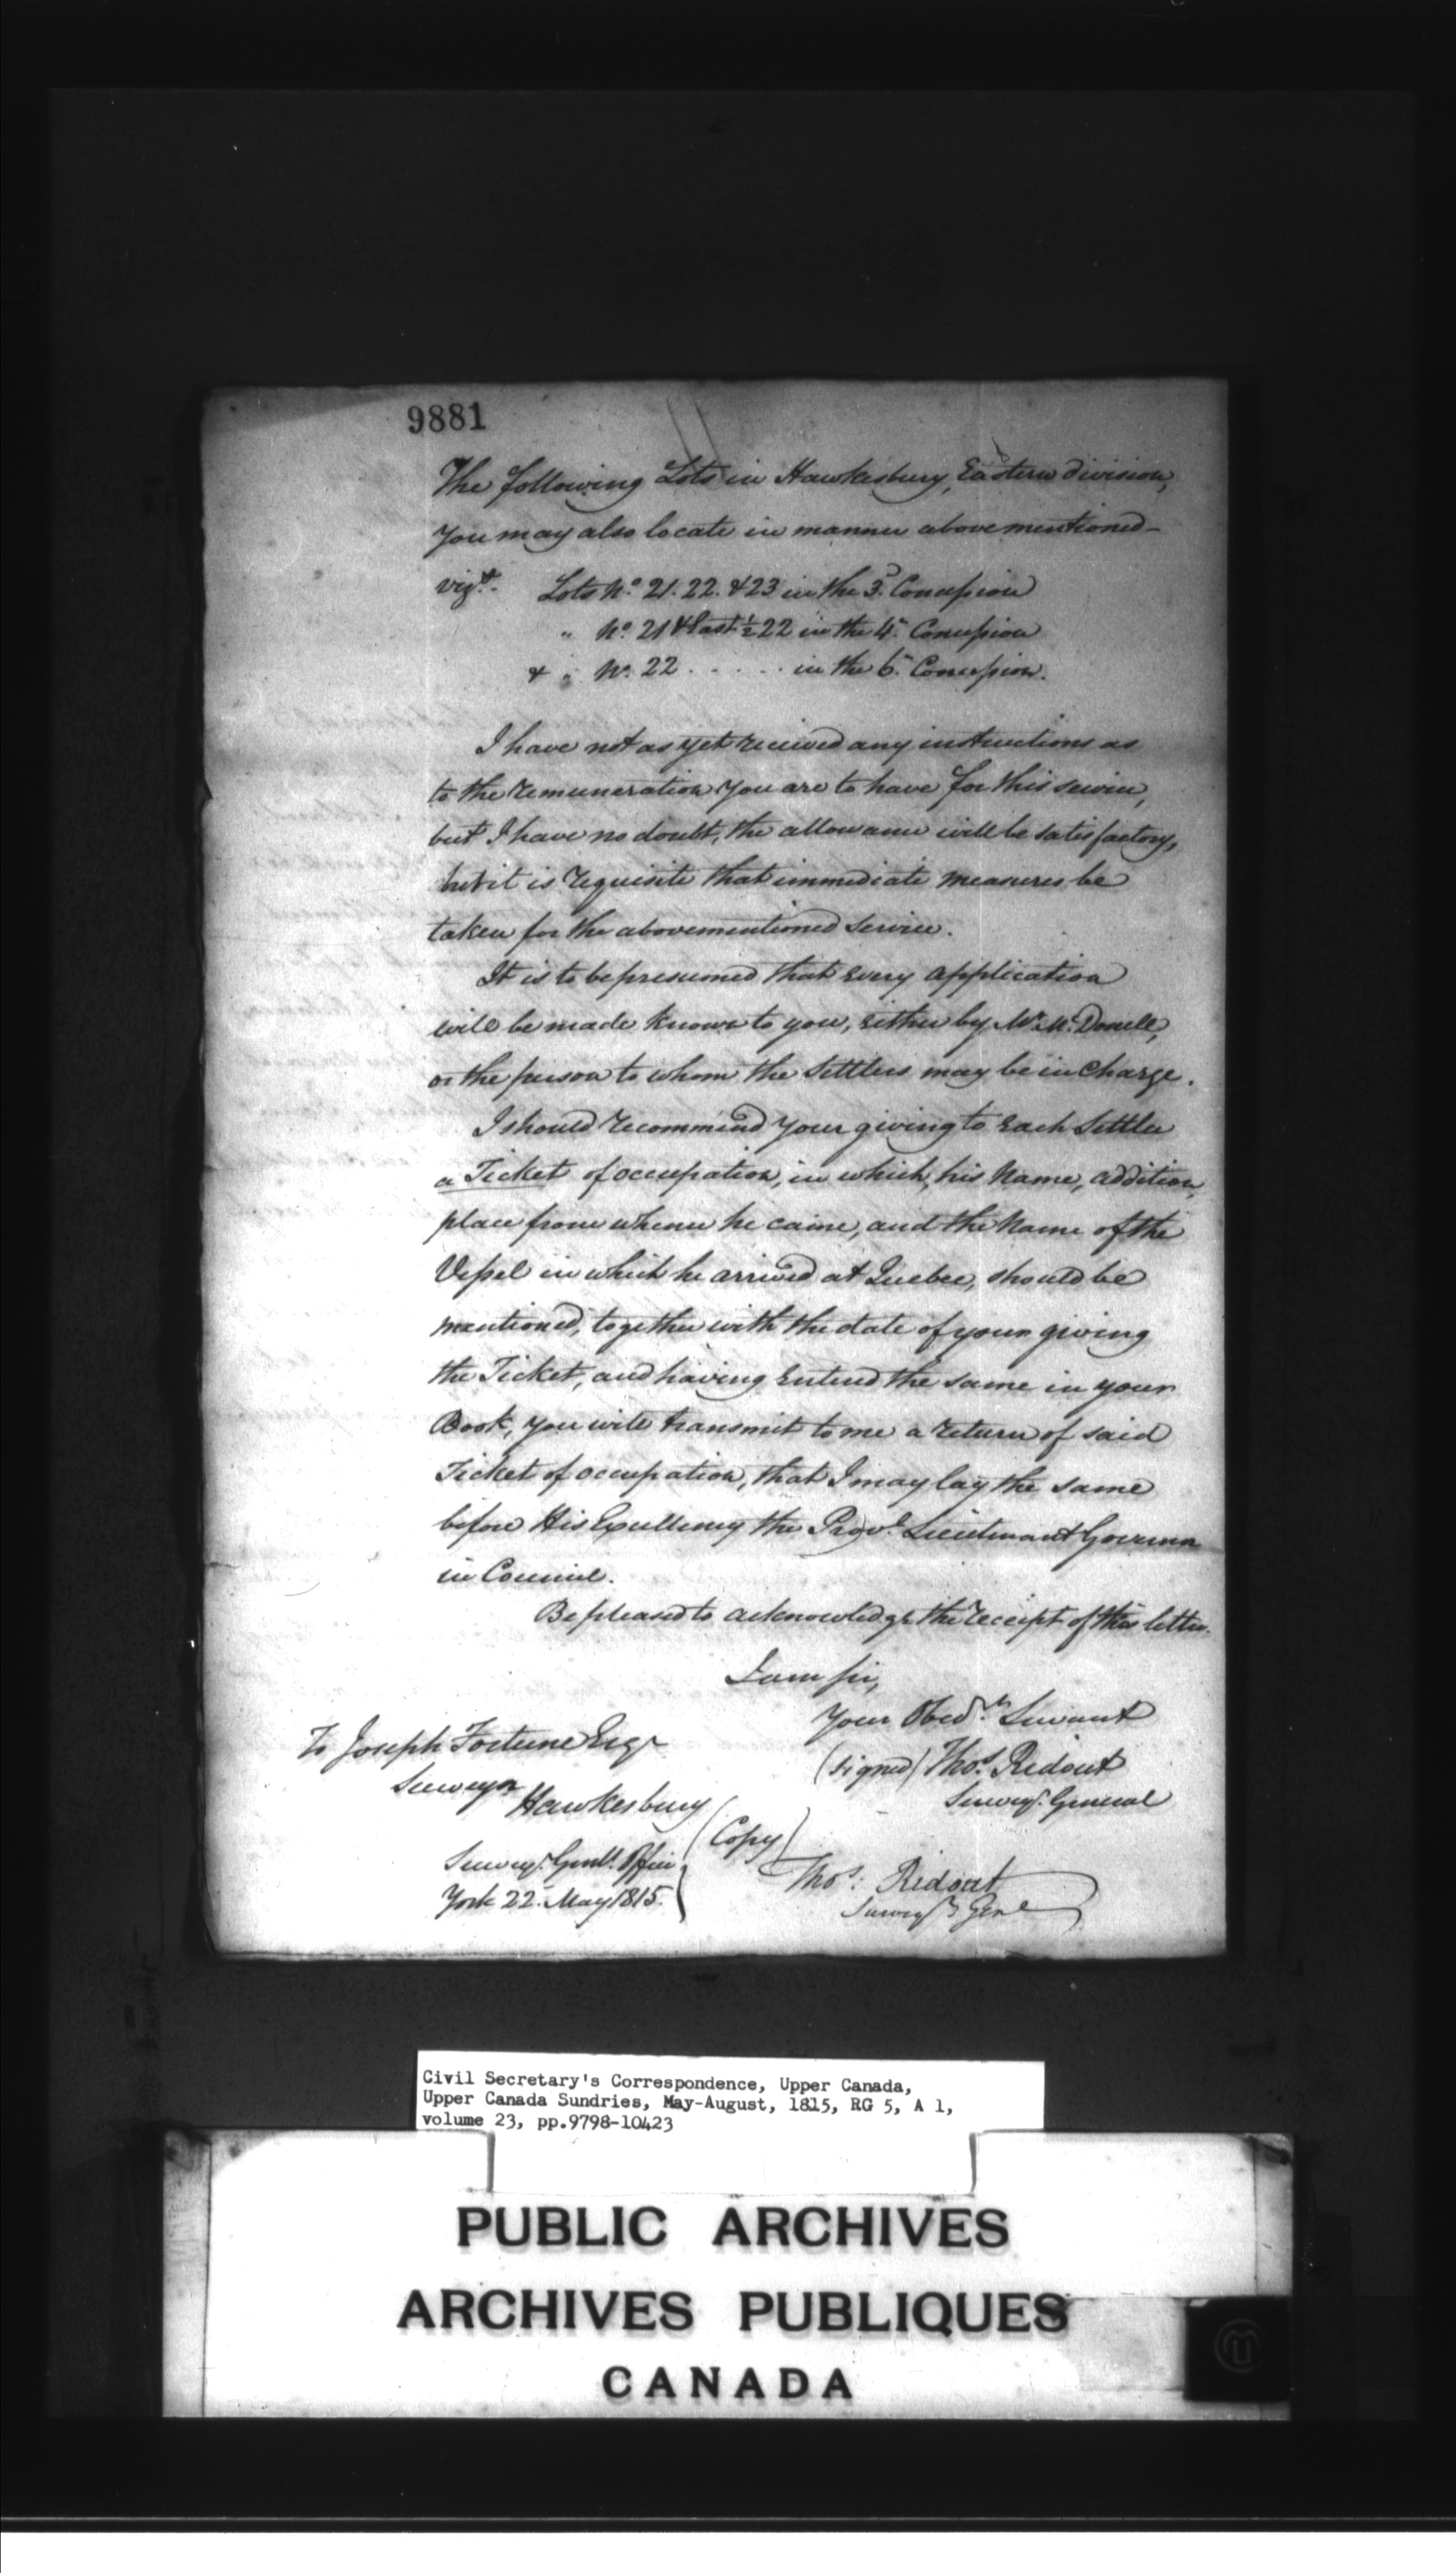 9881
The following Lots in Hawkesbury, Eastern division,
you may also locate in manner abovementioned –
vizt. Lots No. 21. 22. & 23 in the 3d. Concession
" No. 21 & East ½ 22 in the 4th. Concession
& " No. 22 . . . . . in the 6th. Concession.
I have not as yet received any instructions as
to the remuneration you are to have for this service,
but I have no doubt, the allowance will be satisfactory,
but it is requisite that immediate measures be
taken for the abovementioned service.
It is to be presumed that every application
will be made known to you, either by Mr. McDonell,
or the person to whom the Settlers may be in charge.
I should recommend your giving to each Settler
a Ticket of occupation, in which, his Name, addition,
place from whence he came, and the Name of the
Vessel in which he arrived at Quebec, should be
mentioned, together with the date of your giving
the Ticket, and having entered the same in your
Book, you will transmit to me a return of said
Ticket of occupation, that I may lay the same
before His Excellency the Provl. Lieutenant Governor
in Council.
Be pleased to acknowledge the receipt of this letter.
I am Sir,
Your Obedt. Servant
(signed) Thos. Ridout
Survey. General
To Joseph Fortune Esqr
Surveyor
Hawkesbury
(Copy)
Survey. Genls. Office
York 22. May 1815.
Thos: Ridout
Surveyr Genl
Civil Secretary's Correspondence, Upper Canada,
Upper Canada Sundries, May-August, 1815, RG 5, A 1,
volume 23, pp.9798-10423
PUBLIC ARCHIVES
ARCHIVES PUBLIQUES
CANADA